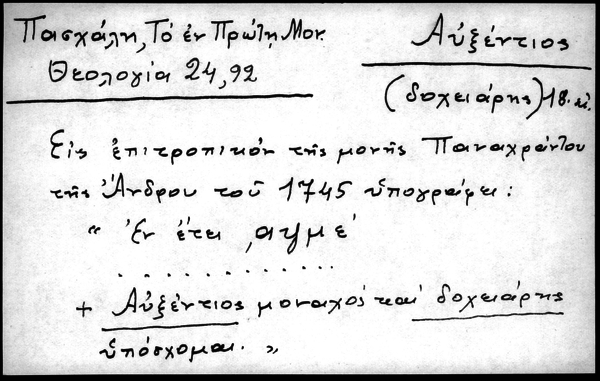 Πασχάλη, Τὸ ἐν Πρώτῃ Μον.
Θεολογία 24, 92
Αὐξέντιος
(δοχειάρης) 18. αἰ.
Εἰς ἐπιτροπικὸν τῆς μονῆς Παναχράντου
τῆς Ἄνδρου τοῦ 1745 ὑπογράφει:
“ Ἐν ἔτει ͵αψμε΄
. . . . . . . . . . . . .
+ Αὐξέντιος μοναχὸς καὶ δοχειάρης
ὑπόσχομαι. „